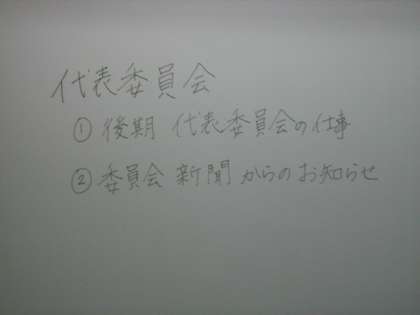 代表委員会
① 後期 代表委員会の仕事
② 委員会 新聞 からのお知らせ